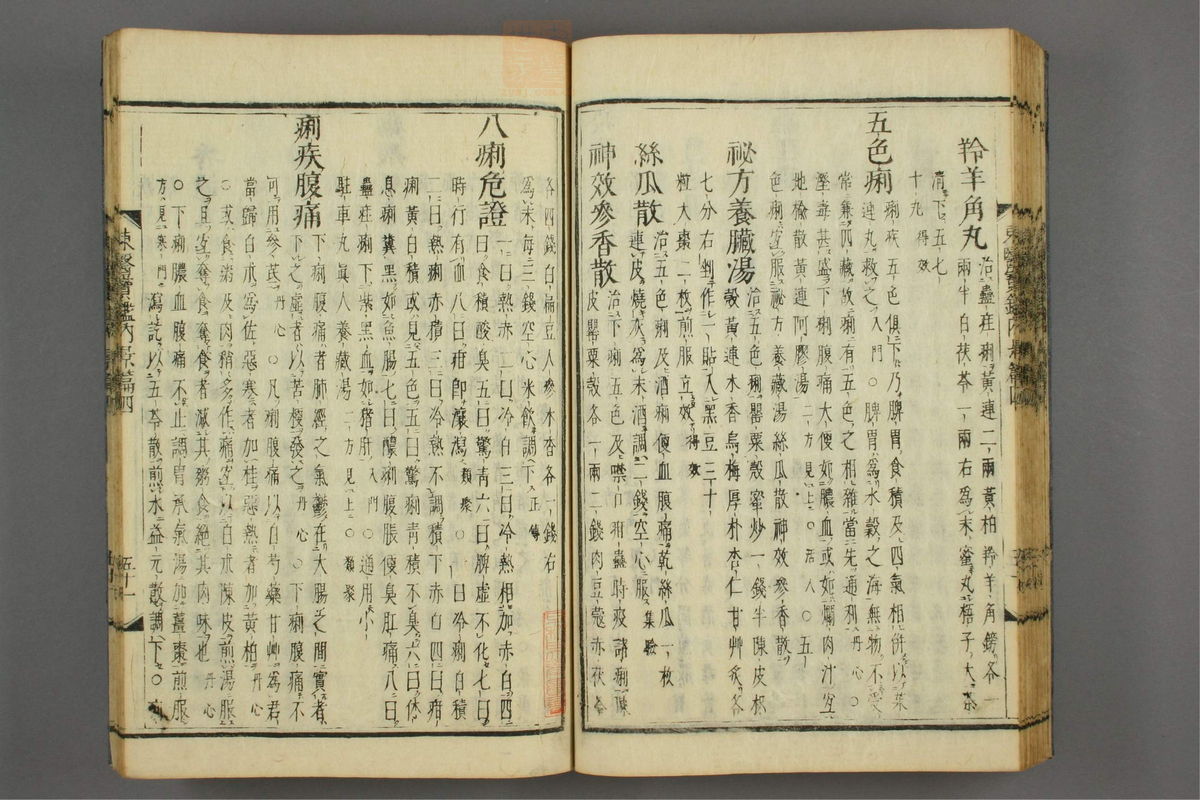 羚羊角丸治蠱疰痢黃連二兩黃柏羚羊角鎊各一
兩半白茯苓一兩右爲末蜜丸梧子大茶
清下五七
十丸得效
五色痢痢疾五色俱下乃脾胃食積及四氣相併以
連丸救之入門○脾胃爲水穀之海無物不受
常兼四藏故痢有五色之相雜當先通利丹心○
毒甚盛下痢腹痛大便如膿血或如爛肉汁宜
地楡散黃連阿膠湯二方見上○五
色痢宜服祕方養藏湯絲瓜散神效參香散
祕方養臟湯治五色痢罌粟殼蜜炒一錢半陳皮枳
殼黃連木香烏梅厚朴杏仁甘艸炙各
七分右剉作一貼入黑豆三十
粒大棗二枚煎服立效得效
絲瓜散治五色痢及酒痢便血腹痛乾絲瓜一枚
連皮燒灰爲末酒調二錢空心服集驗
神效參香散治下痢五色及噤口疳蟲時疫諸痢陳
皮罌粟殼各一兩二錢肉豆蔲赤茯苓
各四錢白扁豆人參木香各一錢右
爲末每三錢空心米飮調下正傳
八痢危證一曰熱赤二曰冷白三曰冷熱相加赤白四
曰食積酸臭五曰驚靑六曰脾虛不化七曰
時行有血八曰疳卽瀼瀉類聚○一曰冷痢白積
二曰熱痢赤積三曰冷熱不調積下赤白四曰疳
痢黃白積或見五色五曰驚痢靑積不臭六曰休
息痢糞黑如魚腸七曰膿痢腹脹便臭肛痛八曰
蠱疰痢下紫黑血如猪肝入門○通用小
駐車丸眞人養藏湯二方見上○類聚
痢疾腹痛下痢腹痛者肺經之氣鬱在大腸之間實者
下之虛者以苦梗發之丹心○下痢腹痛不
可用參芪丹心○凡痢腹痛以白芍藥甘艸爲君
當歸白朮爲佐惡寒者加桂惡熱者加黃柏丹心
○或食粥及肉稍多作痛宜以白朮陳皮煎湯服
之且宜奪食奪食者減其粥食絶其肉味也丹心
○下痢膿血腹痛不止調胃承氣湯加薑棗煎服
方見寒門瀉訖以五苓散煎水益元散調下○
東醫寶鑑內景篇四
五十一